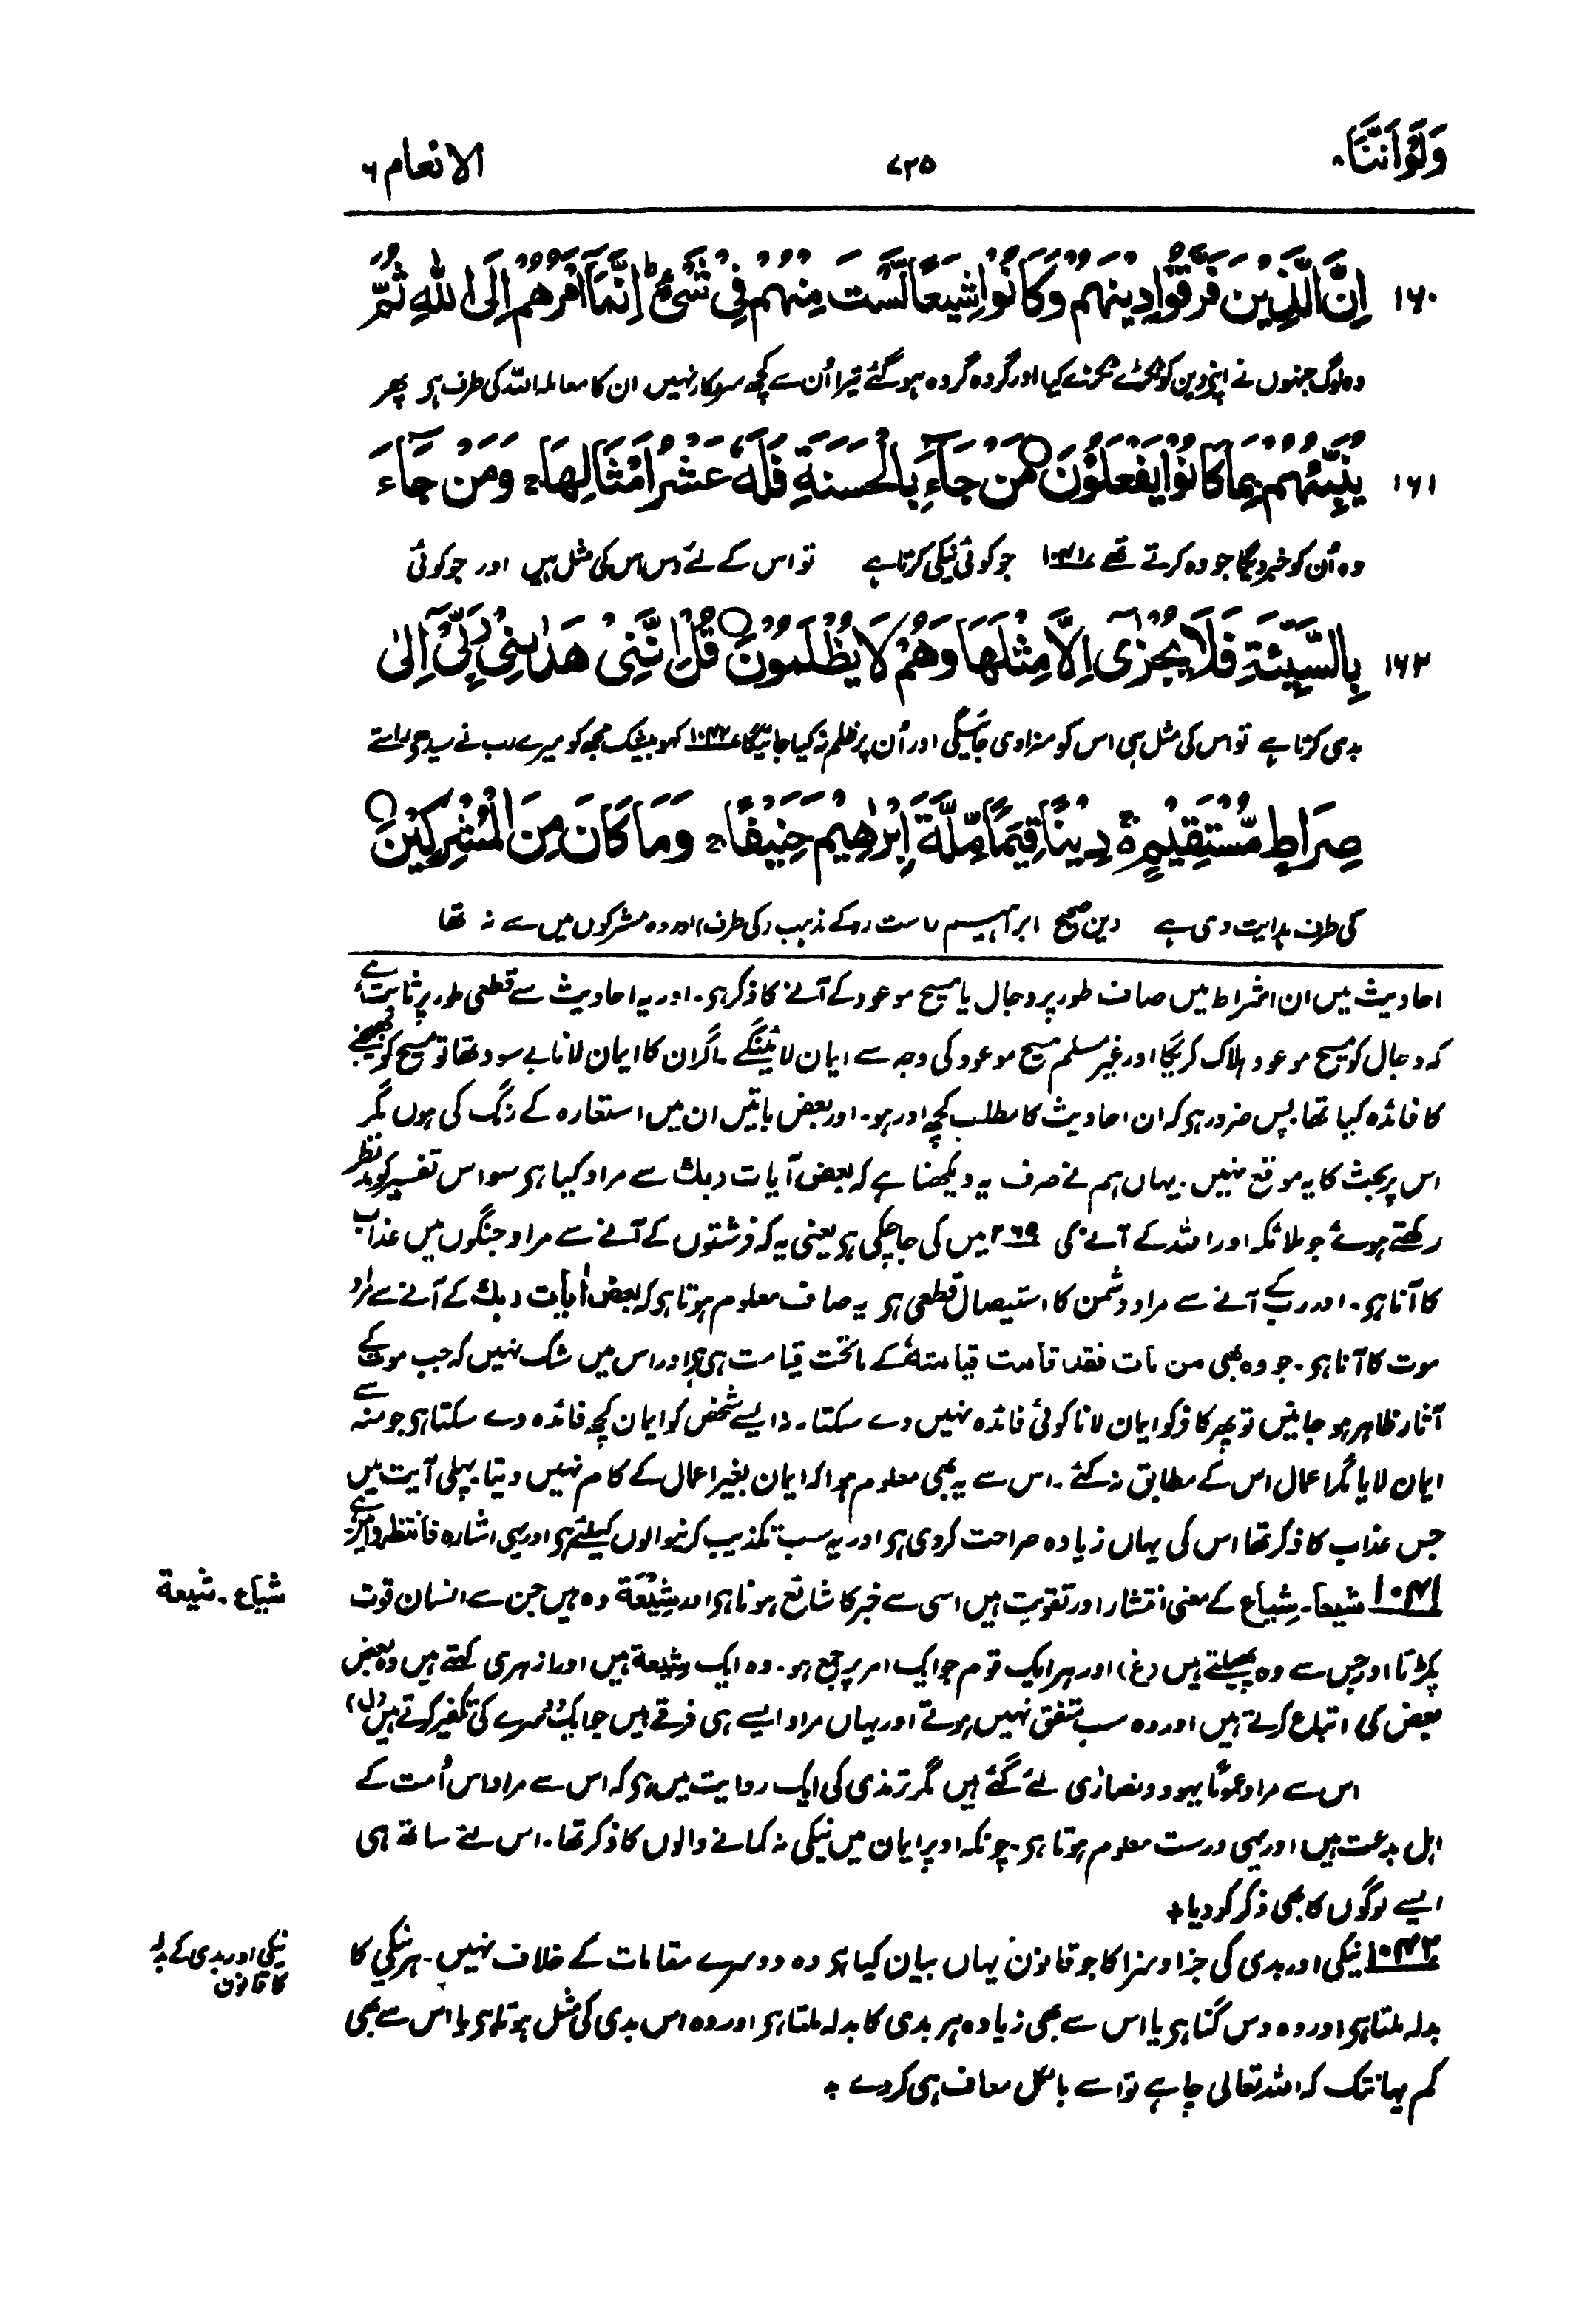 وَلَوْاَنَّنَا ۸
۷۲۵
الانعام ۶
۱۶۰ اِنَّ الَّذِيْنَ فَرَّقُوْا دِيْنَهُمْ وَكَانُوْا شِيَعًا لَّسْتَ مِنْهُمْ فِيْ شَيْءٍ ؕ اِنَّمَآ اَمْرُهُمْ اِلَى اللّٰهِ ثُمَّ
وہ لوگ جنہوں نے اپنے دین کو ٹکڑے ٹکڑے کیا اور گروہ گروہ ہو گئے تیرا اُن سے کچھ سروکار نہیں ان کا معاملہ اللہ کی طرف ہی پھر
۱۶۱ يُنَبِّئُهُمْ بِمَا كَانُوْا يَفْعَلُوْنَ ○ مَنْ جَآءَ بِالْحَسَنَةِ فَلَهٗ عَشْرُ اَمْثَالِهَا ۚ وَمَنْ جَآءَ
وہ اُن کو خبر دیگا جو وہ کرتے تھے ۱۰۴۱ جو کوئی نیکی کرتا ہے تو اس کے لئے دس اس کی مثل ہیں اور جو کوئی
۱۶۲ بِالسَّيِّئَةِ فَلَا يُجْزٰٓى اِلَّا مِثْلَهَا وَهُمْ لَا يُظْلَمُوْنَ ○ قُلْ اِنَّنِيْ هَدٰىنِيْ رَبِّيْٓ اِلٰى
بدی کرتا ہے تو اس کی مثل ہی اس کو سزا دی جائیگی اور اُن پر ظلم نہ کیا جائیگا ۱۰۴۲ کہو بیشک مجھ کو میرے رب نے سیدھے راستے
صِرَاطٍ مُّسْتَقِيْمٍ ۚ دِيْنًا قِيَمًا مِّلَّةَ اِبْرٰهِيْمَ حَنِيْفًا ۚ وَمَا كَانَ مِنَ الْمُشْرِكِيْنَ ○
کی طرف ہدایت دی ہے دین صحیح ابراہیم راست رو کے مذہب (کی طرف) اور وہ مشرکوں میں سے نہ تھا
احادیث میں ان اشراط میں صاف طور پر دجال یا مسیح موعود کے آنے کا ذکر ہی۔ اور یہ احادیث سے قطعی طور پر ثابت ہے
کہ دجال کو مسیح موعود ہلاک کریگا اور غیر مسلم مسیح موعود کی وجہ سے ایمان لائینگے۔ اگر ان کا ایمان لانا بے سود تھا تو مسیح کو بھیجنے
کا فائدہ کیا تھا پس ضرور ہی کہ ان احادیث کا مطلب کچھ اور ہو۔ اور بعض باتیں ان میں استعارہ کے رنگ کی ہوں مگر
اس پر بحث کا یہ موقع نہیں۔ یہاں ہم نے صرف یہ دیکھنا ہے کہ بعض آیات ربك سے مراد کیا ہی سو اس تفسیر کو مد نظر
رکھتے ہوئے جو ملائکہ اور اللہ کے آنے کی ۲۶۹ میں کی جا چکی ہی یعنی یہ کہ فرشتوں کے آنے سے مراد جنگوں میں عذاب
کا آنا ہی۔ اور رب کے آنے سے مراد دشمن کا استیصال قطعی ہی یہ صاف معلوم ہوتا ہی کہ بعض اٰیات ربك کے آنے سے مراد
موت کا آنا ہی۔ جو وہ بھی من مات فقد قامت قیامتهٗ کے ماتحت قیامت ہی ہی اور اس میں شک نہیں کہ جب موت کے
آثار ظاہر ہو جائیں تو پھر کافر کو ایمان لانا کوئی فائدہ نہیں دے سکتا۔ نہ ایسے شخص کو ایمان کچھ فائدہ دے سکتا ہی جو منہ سے
ایمان لایا مگر اعمال اس کے مطابق نہ کئے۔ اس سے یہ بھی معلوم ہوا کہ ایمان بغیر اعمال کے کام نہیں دیتا پہلی آیت میں
جس عذاب کا ذکر تھا اس کی یہاں زیادہ صراحت کر دی ہی اور یہ سب تکذیب کرنیوالوں کیلئے ہی اور یہی اشارہ فانتظروا میں ہے
۱۰۴۱ شیعا۔ شِیاع کے معنی انتشار اور تقویت ہیں اسی سے خبر کا شائع ہونا ہی اور شِیْعَة وہ ہیں جن سے انسان قوت
شیاع۔ شیعة
پکڑتا اور جس سے وہ پھیلتے ہیں (غ) اور ہر ایک قوم جو ایک امر پر جمع ہو۔ وہ ایک شیعة ہیں اور ازہری کہتے ہیں وہ بعض
بعض کی اتباع کرتے ہیں اور وہ سب متفق نہیں ہوتے اور یہاں مراد ایسے ہی فرقے ہیں جو ایک دوسرے کی تکفیر کرتے ہیں (ل)
اس سے مراد عموماً یہود و نصاریٰ لئے گئے ہیں مگر ترمذی کی ایک روایت میں ہی کہ اس سے مراد اس اُمت کے
اہل بدعت ہیں اور یہی درست معلوم ہوتا ہی۔ چونکہ اوپر ایمان میں نیکی نہ کمانے والوں کا ذکر تھا۔ اس لئے ساتھ ہی
ایسے لوگوں کا بھی ذکر کر دیا +
۱۰۴۲ نیکی اور بدی کی جزا و سزا کا جو قانون یہاں بیان کیا ہی وہ دوسرے مقامات کے خلاف نہیں۔ ہر نیکی کا
نیکی اور بدی کے بدلہ
کا قانون
بدلہ ملتا ہی اور وہ دس گنا ہی یا اس سے بھی زیادہ ہر بدی کا بدلہ ملتا ہی اور وہ اس بدی کی مثل ہوتا ہی یا اس سے بھی
کم یہانتک کہ اللہ تعالی چاہے تو اسے بالکل معاف ہی کر دے +